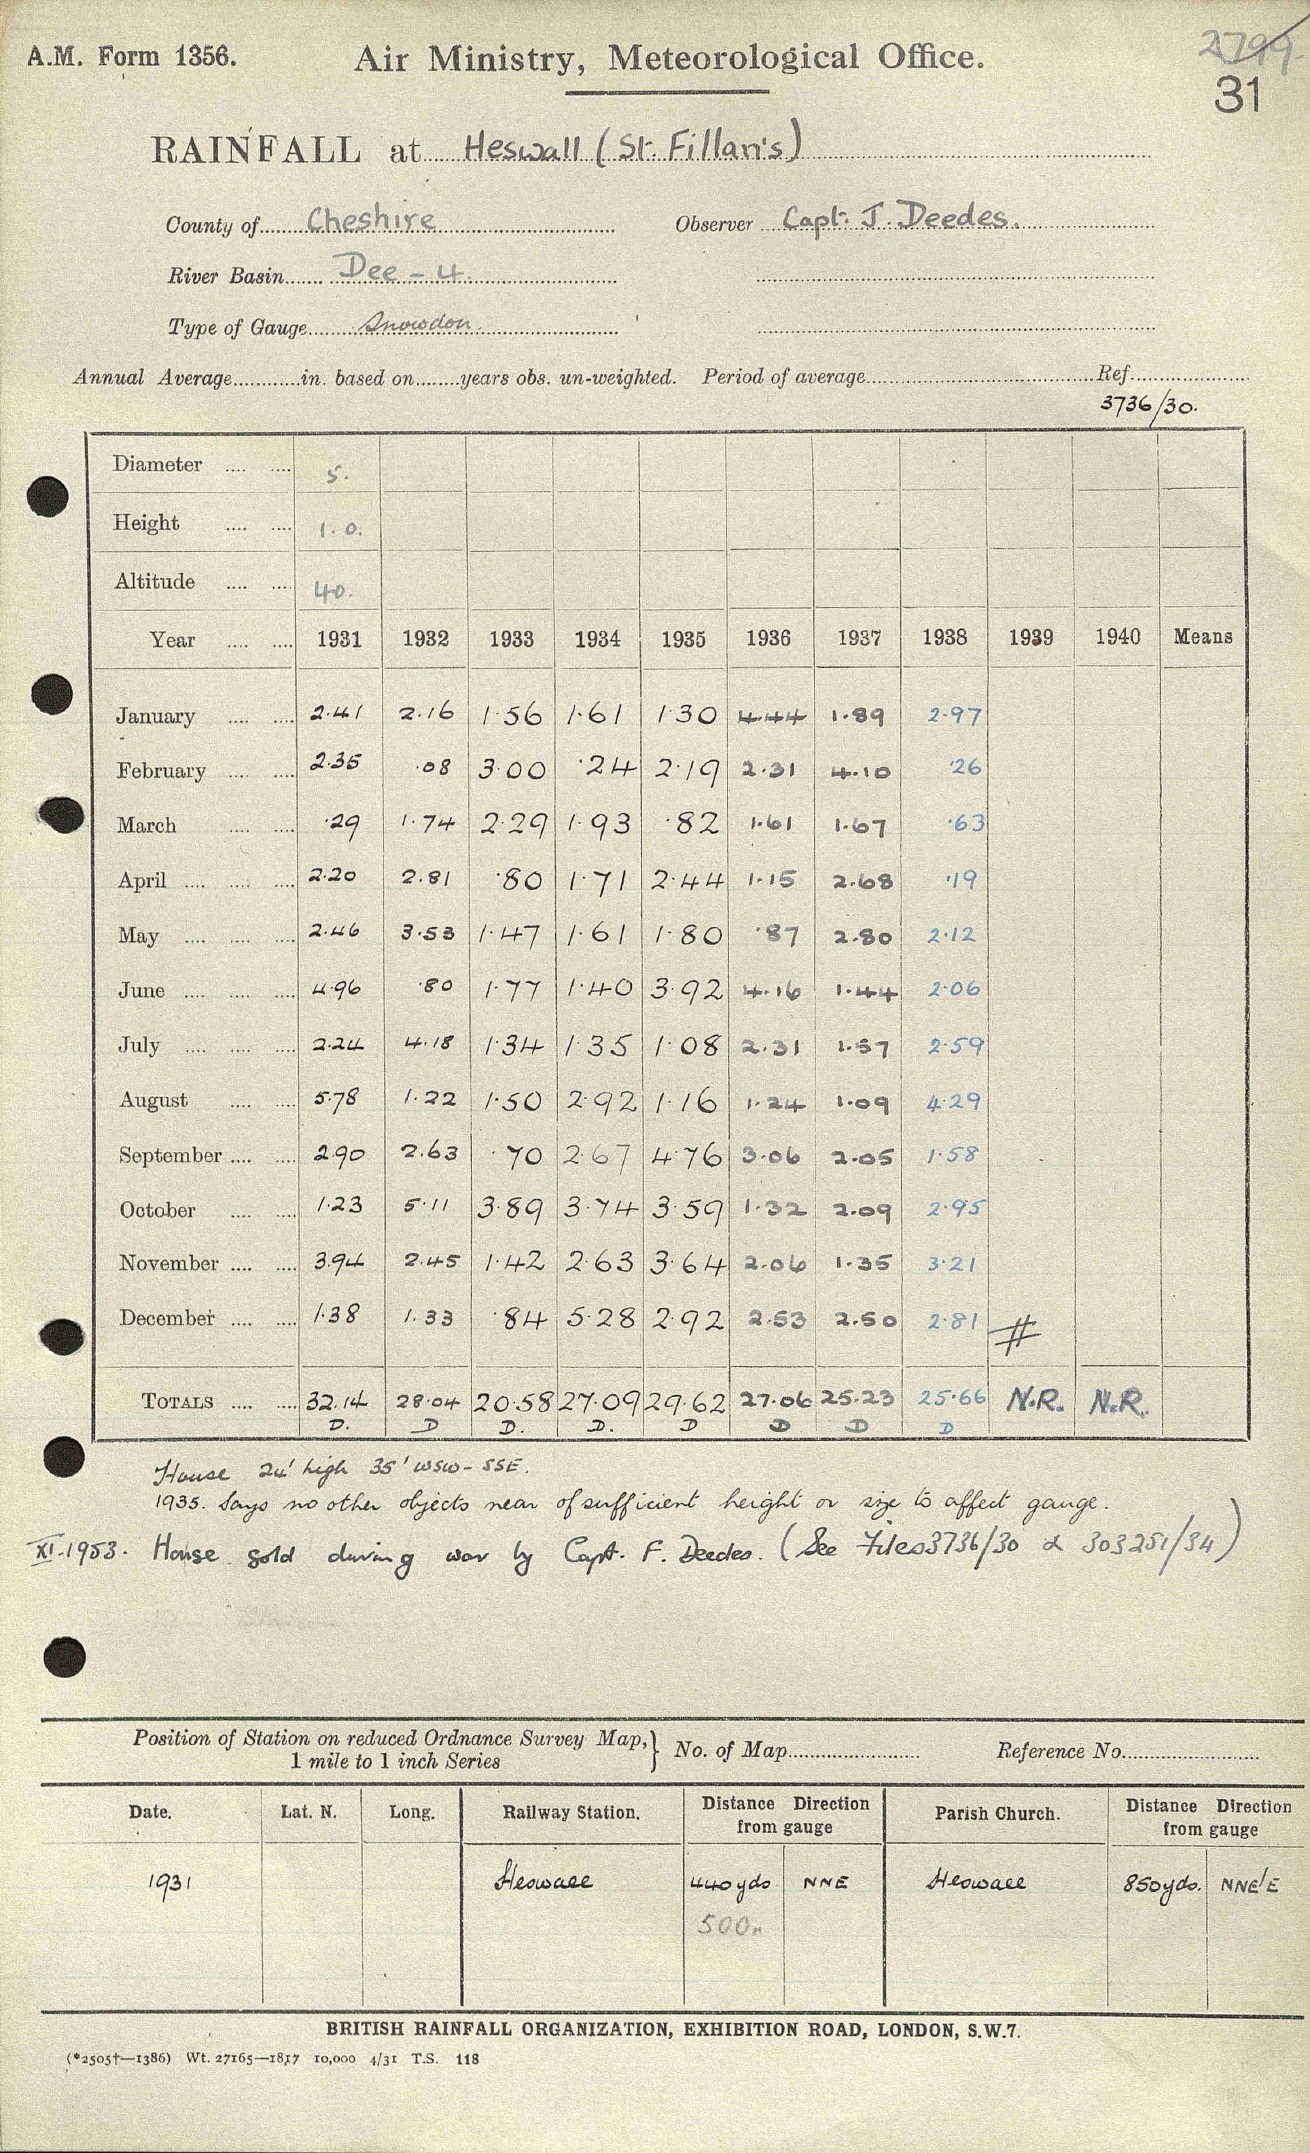 2799.
A.M. Form 1356. Air Ministry, Meteorological Office.
31
RAINFALL at Heswall (St. Fillan's)
County of Cheshire Observer Capt. J. Deedes.
River Basin Dee - 4.
Type of Gauge Snowdon.
Annual Average............in. based on........years obs. un-weighted. Period of average.................Ref.................
3736/30.
Diameter .... .... 5.
Height .... .... 1.0.
Altitude .... .... 40.
Year .... .... 1931 1932 1933 1934 1935 1936 1937 1938 1939 1940 Means
January .... .... 2.41 2.16 1.56 1.61 1.30 4.44 1.89 2.97
February .... .... 2.35 .08 3.00 .24 2.19 2.31 4.10 .26
March .... .... .29 1.74 2.29 1.93 .82 1.61 1.67 .63
April .... .... .... 2.20 2.81 .80 1.71 2.44 1.15 2.68 .19
May .... .... .... 2.46 3.53 1.47 1.61 1.80 .87 2.80 2.12
June .... .... .... 4.96 .80 1.77 1.40 3.92 4.16 1.44 2.06
July .... .... .... 2.24 4.18 1.34 1.35 1.08 2.31 1.57 2.59
August .... .... 5.78 1.22 1.50 2.92 1.16 1.24 1.09 4.29
September .... .... 2.90 2.63 .70 2.67 4.76 3.06 2.05 1.58
October .... .... 1.23 5.11 3.89 3.74 3.59 1.32 2.09 2.95
November .... .... 3.94 2.45 1.42 2.63 3.64 2.06 1.35 3.21
December .... .... 1.38 1.33 .84 5.28 2.92 2.53 2.50 2.81 #
TOTALS .... .... 32.14 28.04 20.58 27.09 29.62 27.06 25.23 25.66 N.R. N.R.
D. D D. D. D D D D
House 24' high 35' WSW-SSE.
1935. Says no other objects near of sufficient height or size to affect gauge.
XI.1953. House sold during war by Capt. F. Deedes. (See Files 3736/30 & 303251/34)
Position of Station on reduced Ordnance Survey Map, } No. of Map........................ Reference No........................
1 mile to 1 inch Series
Date. Lat. N. Long. Railway Station. Distance Direction from gauge Parish Church. Distance Direction from gauge
1931 Heswall 440yds NNE Heswall 850yds. NNE/E
500m
BRITISH RAINFALL ORGANIZATION, EXHIBITION ROAD, LONDON, S.W.7.
(*2505†—1386) Wt. 27165—1817 10,000 4/31 T.S. 118